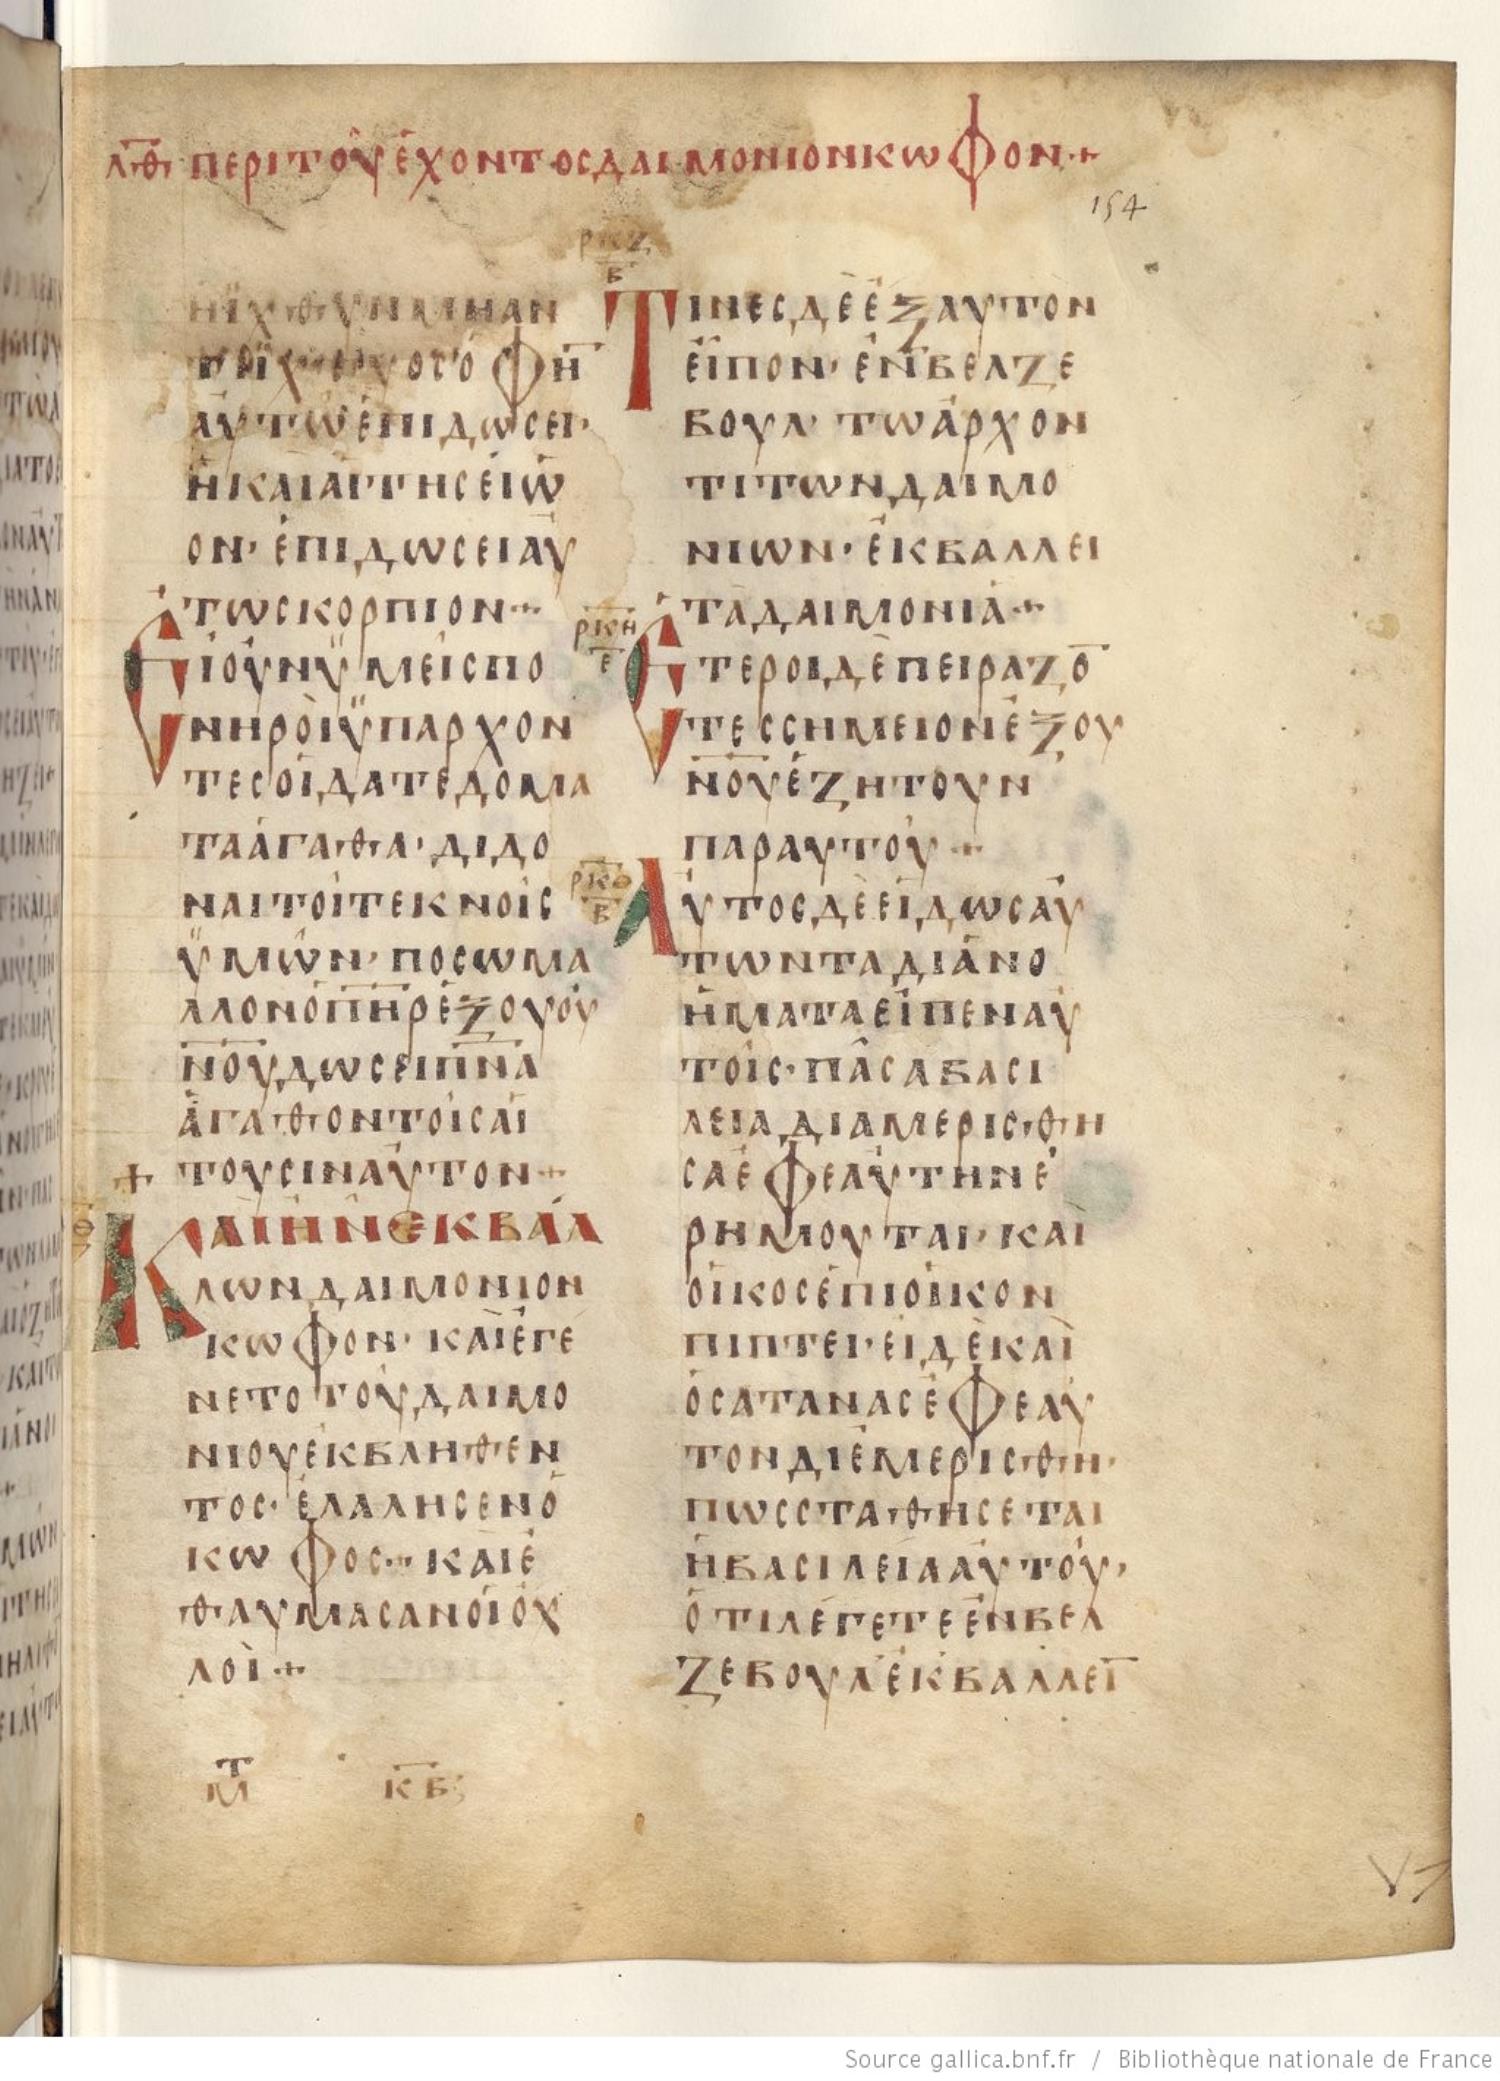 λθ ΠΕΡΙ ΤΟΥ ΕΧΟΝΤΟΣ ΔΑΙΜΟΝΙΟΝ ΚΩΦΟΝ
154
Η ΙΧΘΥΝ ΜΗ ΑΝ
ΤΙ ΙΧΘΥΟC ΟΦΗ
ΑΥΤΩ ΕΠΙΔΩCΕΙ·
Η ΚΑΙ ΑΙΤΗCΕΙ Ω
ΟΝ· ΕΠΙΔΩCΕΙ ΑΥ
ΤΩ CΚΟΡΠΙΟΝ
ΕΙ ΟΥΝ ΫΜΕΙC ΠΟ
ΝΗΡΟΙ ΫΠΑΡΧΟΝ
ΤΕC ΟΙΔΑΤΕ ΔΟΜΑ
ΤΑ ΑΓΑΘΑ· ΔΙΔΟ
ΝΑΙ ΤΟΙ ΤΕΚΝΟΙC
ΫΜΩΝ· ΠΟCΩ ΜΑ
ΛΛΟΝ Ο ΠΗΡ ΕΞ ΟΥΟΥ
ΝΟΥ ΔΩCΕΙ ΠΝΑ
ΑΓΑΘΟΝ ΤΟΙC ΑΙ
ΤΟΥCΙΝ ΑΥΤΟΝ
ΚΑΙ ΗΝ ΕΚΒΑΛ
ΛΩΝ ΔΑΙΜΟΝΙΟΝ
ΚΩΦΟΝ· ΚΑΙ ΕΓΕ
ΝΕΤΟ ΤΟΥ ΔΑΙΜΟ
ΝΙΟΥ ΕΚΒΛΗΘΕΝ
ΤΟC· ΕΛΑΛΗCΕΝ Ο
ΚΩΦΟC·· ΚΑΙ Ε
ΘΑΥΜΑCΑΝ ΟΙ ΟΧ
ΛΟΙ
ΡΚΖ
Β
ΤΙΝΕC ΔΕ ΕΞ ΑΥΤΟΝ
ΕΙΠΟΝ· ΕΝ ΒΕΛΖΕ
ΒΟΥΛ ΤΩ ΑΡΧΟΝ
ΤΙ ΤΩΝ ΔΑΙΜΟ
ΝΙΩΝ· ΕΚΒΑΛΛΕΙ
ΤΑ ΔΑΙΜΟΝΙΑ
ΡΚΗ
Ε
ΕΤΕΡΟΙ ΔΕ ΠΕΙΡΑΖΟ̅
ΤΕC CΗΜΕΙΟΝ ΕΞ ΟΥ
ΝΟΥ ΕΖΗΤΟΥΝ
ΠΑΡ ΑΥΤΟΥ
ΡΚΘ
Β
ΑΥΤΟC ΔΕ ΕΙΔΩC ΑΥ
ΤΩΝ ΤΑ ΔΙΑΝΟ
ΗΜΑΤΑ ΕΙΠΕΝ ΑΥ
ΤΟΙC· ΠΑCΑ ΒΑCΙ
ΛΕΙΑ ΔΙΑΜΕΡΙCΘΗ
CΑ ΕΦ ΕΑΥΤΗΝ Ε
ΡΗΜΟΥΤΑΙ· ΚΑΙ
ΟΙΚΟC ΕΠΙ ΟΙΚΟΝ
ΠΙΠΤΕΙ· ΕΙ ΔΕ ΚΑΙ
Ο CΑΤΑΝΑC ΕΦ ΕΑΥ
ΤΟΝ ΔΙΕΜΕΡΙCΘΗ·
ΠΩC CΤΑΘΗCΕΤΑΙ
Η ΒΑCΙΛΕΙΑ ΑΥΤΟΥ,
ΟΤΙ ΛΕΓΕΤΕ ΕΝ ΒΕΛ
ΖΕΒΟΥΛ ΕΚΒΑΛΛΕΙ
ΜΤ ΚΒ
Source gallica.bnf.fr / Bibliothèque nationale de France